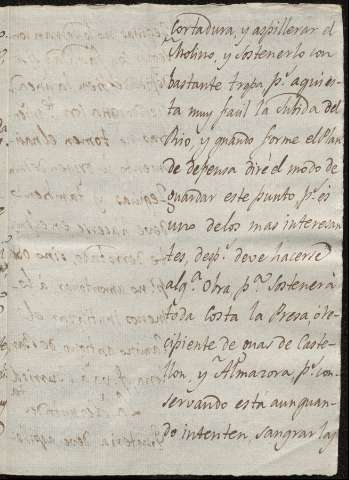 Cortadura, y aspillerar el
Molino, y sostenerlo con
bastante tropa p.ʳ aqui es-
ta muy facil la subida del
Rio, y quando forme el Plan
de defensa diré el modo de
guardar este punto p.ʳ es
uno delos mas interesan-
tes, desp.ˢ deve hacerse
alg.ᵃ Obra p.ᵃ Sostener á
toda Costa la Presa ó re-
cipiente de aguas de Caste-
llon, y Almazora, p.ʳ con-
servando esta aunquan-
do intenten, sangrar las